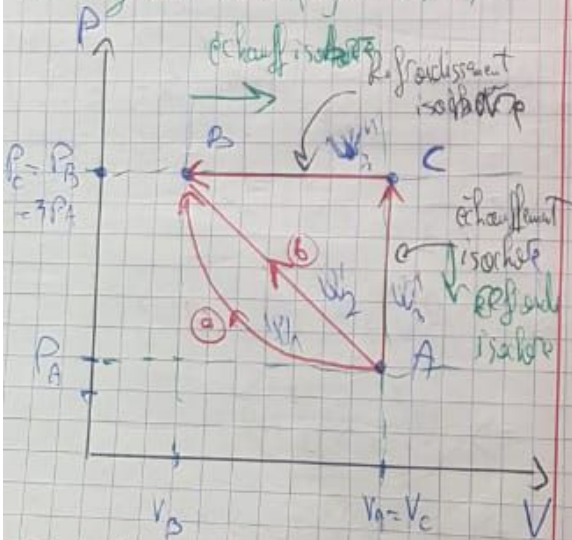 P
échauff isobare
Refroidissement
isobare
B
W''3
C
P_C = P_B
= 3P_A
échauffement
isochore
b
W2
W'3
Refroid
isochore
a
W1
P_A
A
V_B
V_A = V_C
V